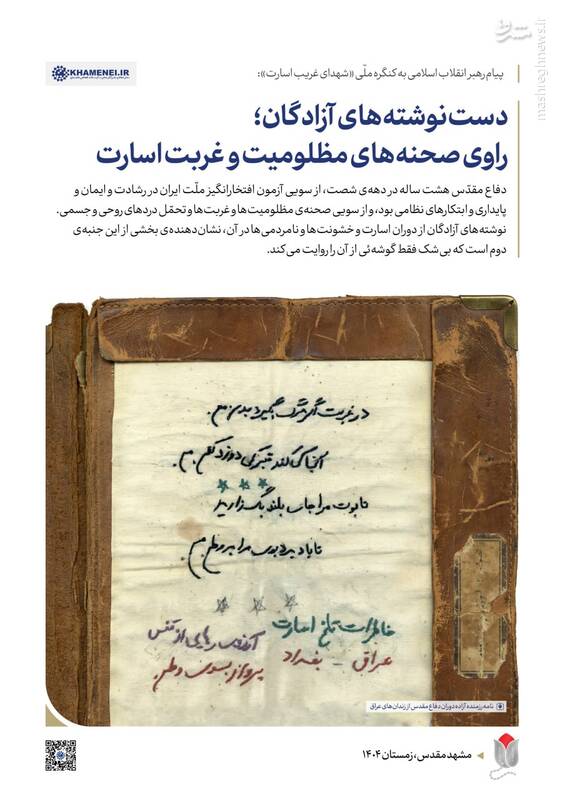 مشرق
mashreghnews.ir
KHAMENEI.IR
پیام رهبر انقلاب اسلامی به کنگره ملّی «شهدای غریب اسارت»:
دست‌نوشته‌های آزادگان؛
راوی صحنه‌های مظلومیت و غربت اسارت
دفاع مقدّس هشت ساله در دهه‌ی شصت، از سویی آزمون افتخارانگیز ملّت ایران در رشادت و ایمان و
پایداری و ابتکارهای نظامی بود، و از سویی صحنه‌ی مظلومیت‌ها و غربت‌ها و تحمّل دردهای روحی و جسمی.
نوشته‌های آزادگان از دوران اسارت و خشونت‌ها و نامردمی‌ها در آن، نشان‌دهنده‌ی بخشی از این جنبه‌ی
دوم است که بی‌شک فقط گوشه‌ئی از آن را روایت می‌کند.
در غربت اگر مرگ بگیرد بدن من
آیا که کند قبر و که دوزد کفن من
تابوت مرا جای بلند بگذارید
تا باد برد بوی مرا بر وطن من
خاطرات تلخ اسارت
عراق - بغداد
پرواز بسوی وطن
نامه رزمنده آزاده دوران دفاع مقدس از زندان‌های عراق
مشهد مقدس، زمستان ۱۴۰۴